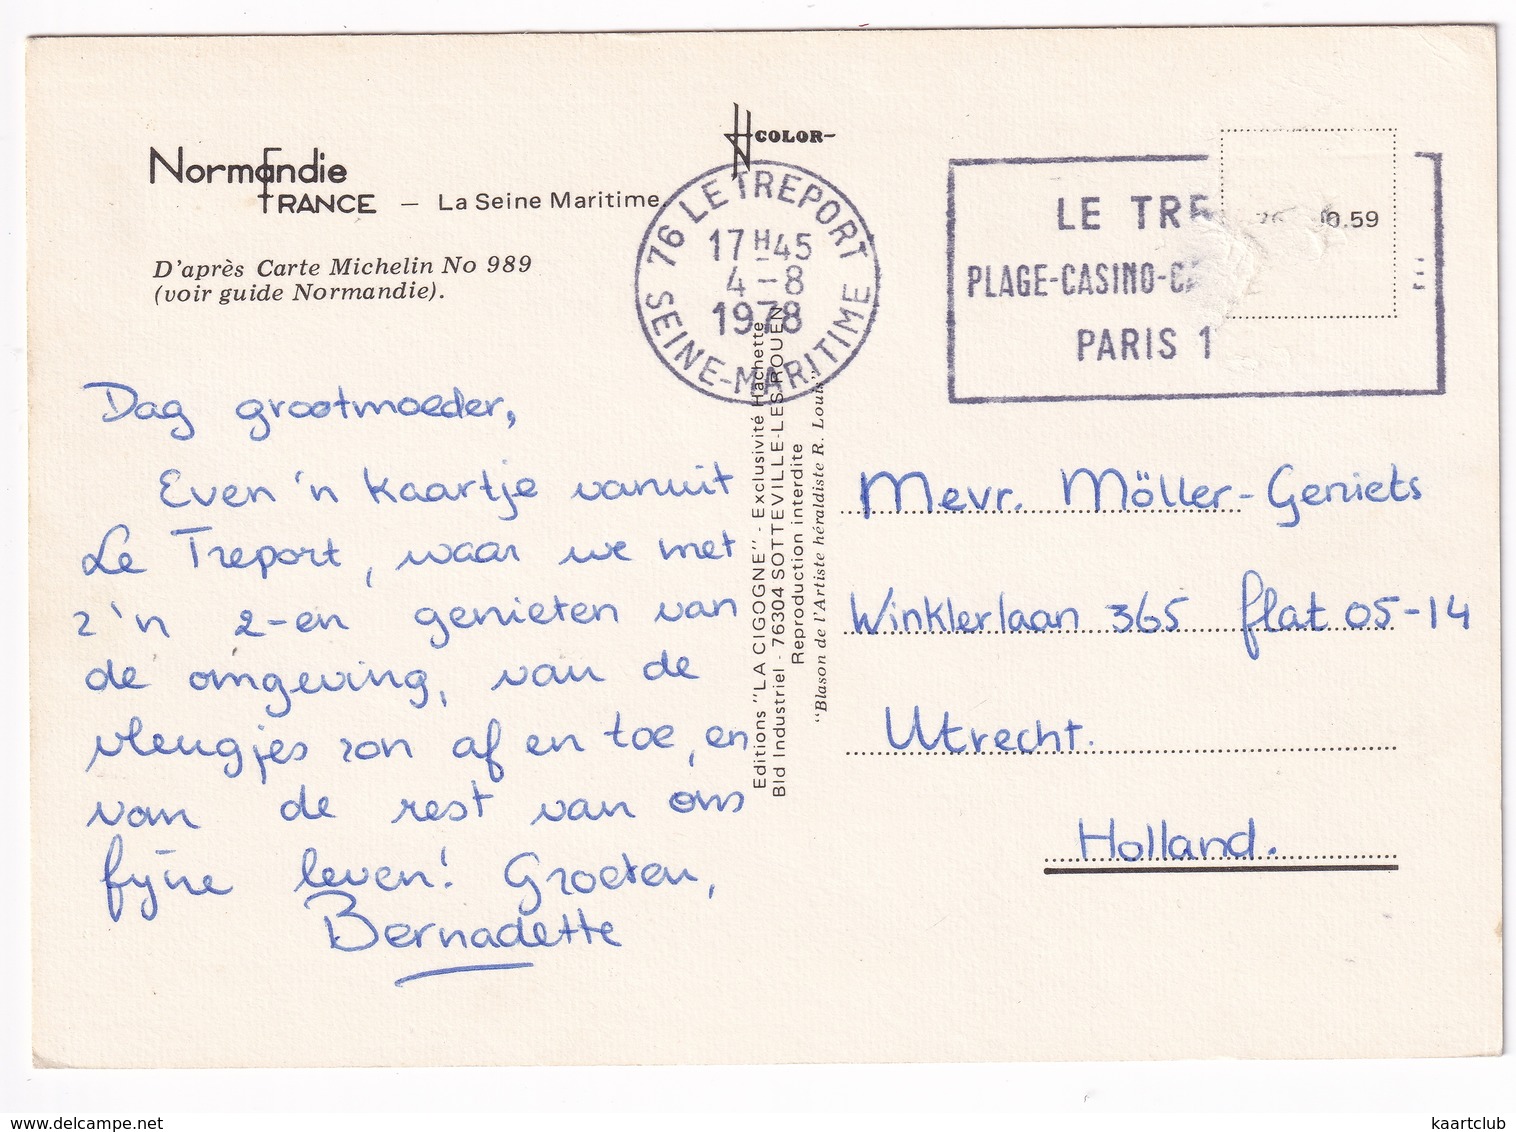 COLOR
Normandie
FRANCE — La Seine Maritime.
D'après Carte Michelin No 989
(voir guide Normandie).
76 LE TREPORT
17H45
4-8
1978
SEINE-MARITIME
LE TRE
PLAGE-CASINO-CA
PARIS 1
0.59
Dag grootmoeder,
Even 'n kaartje vanuit
Le Treport, waar we met
z'n 2-en genieten van
de omgeving, van de
vleugjes zon af en toe, en
van de rest van ons
fijne leven! Groeten,
Bernadette
Editions "LA CIGOGNE" - Exclusivité Hachette
Bld Industriel - 76304 SOTTEVILLE-LES-ROUEN
Reproduction interdite
"Blason de l'Artiste héraldiste R. Louis"
Mevr. Möller-Geniets
Winklerlaan 365 flat 05-14
Utrecht.
Holland.
kaartclub